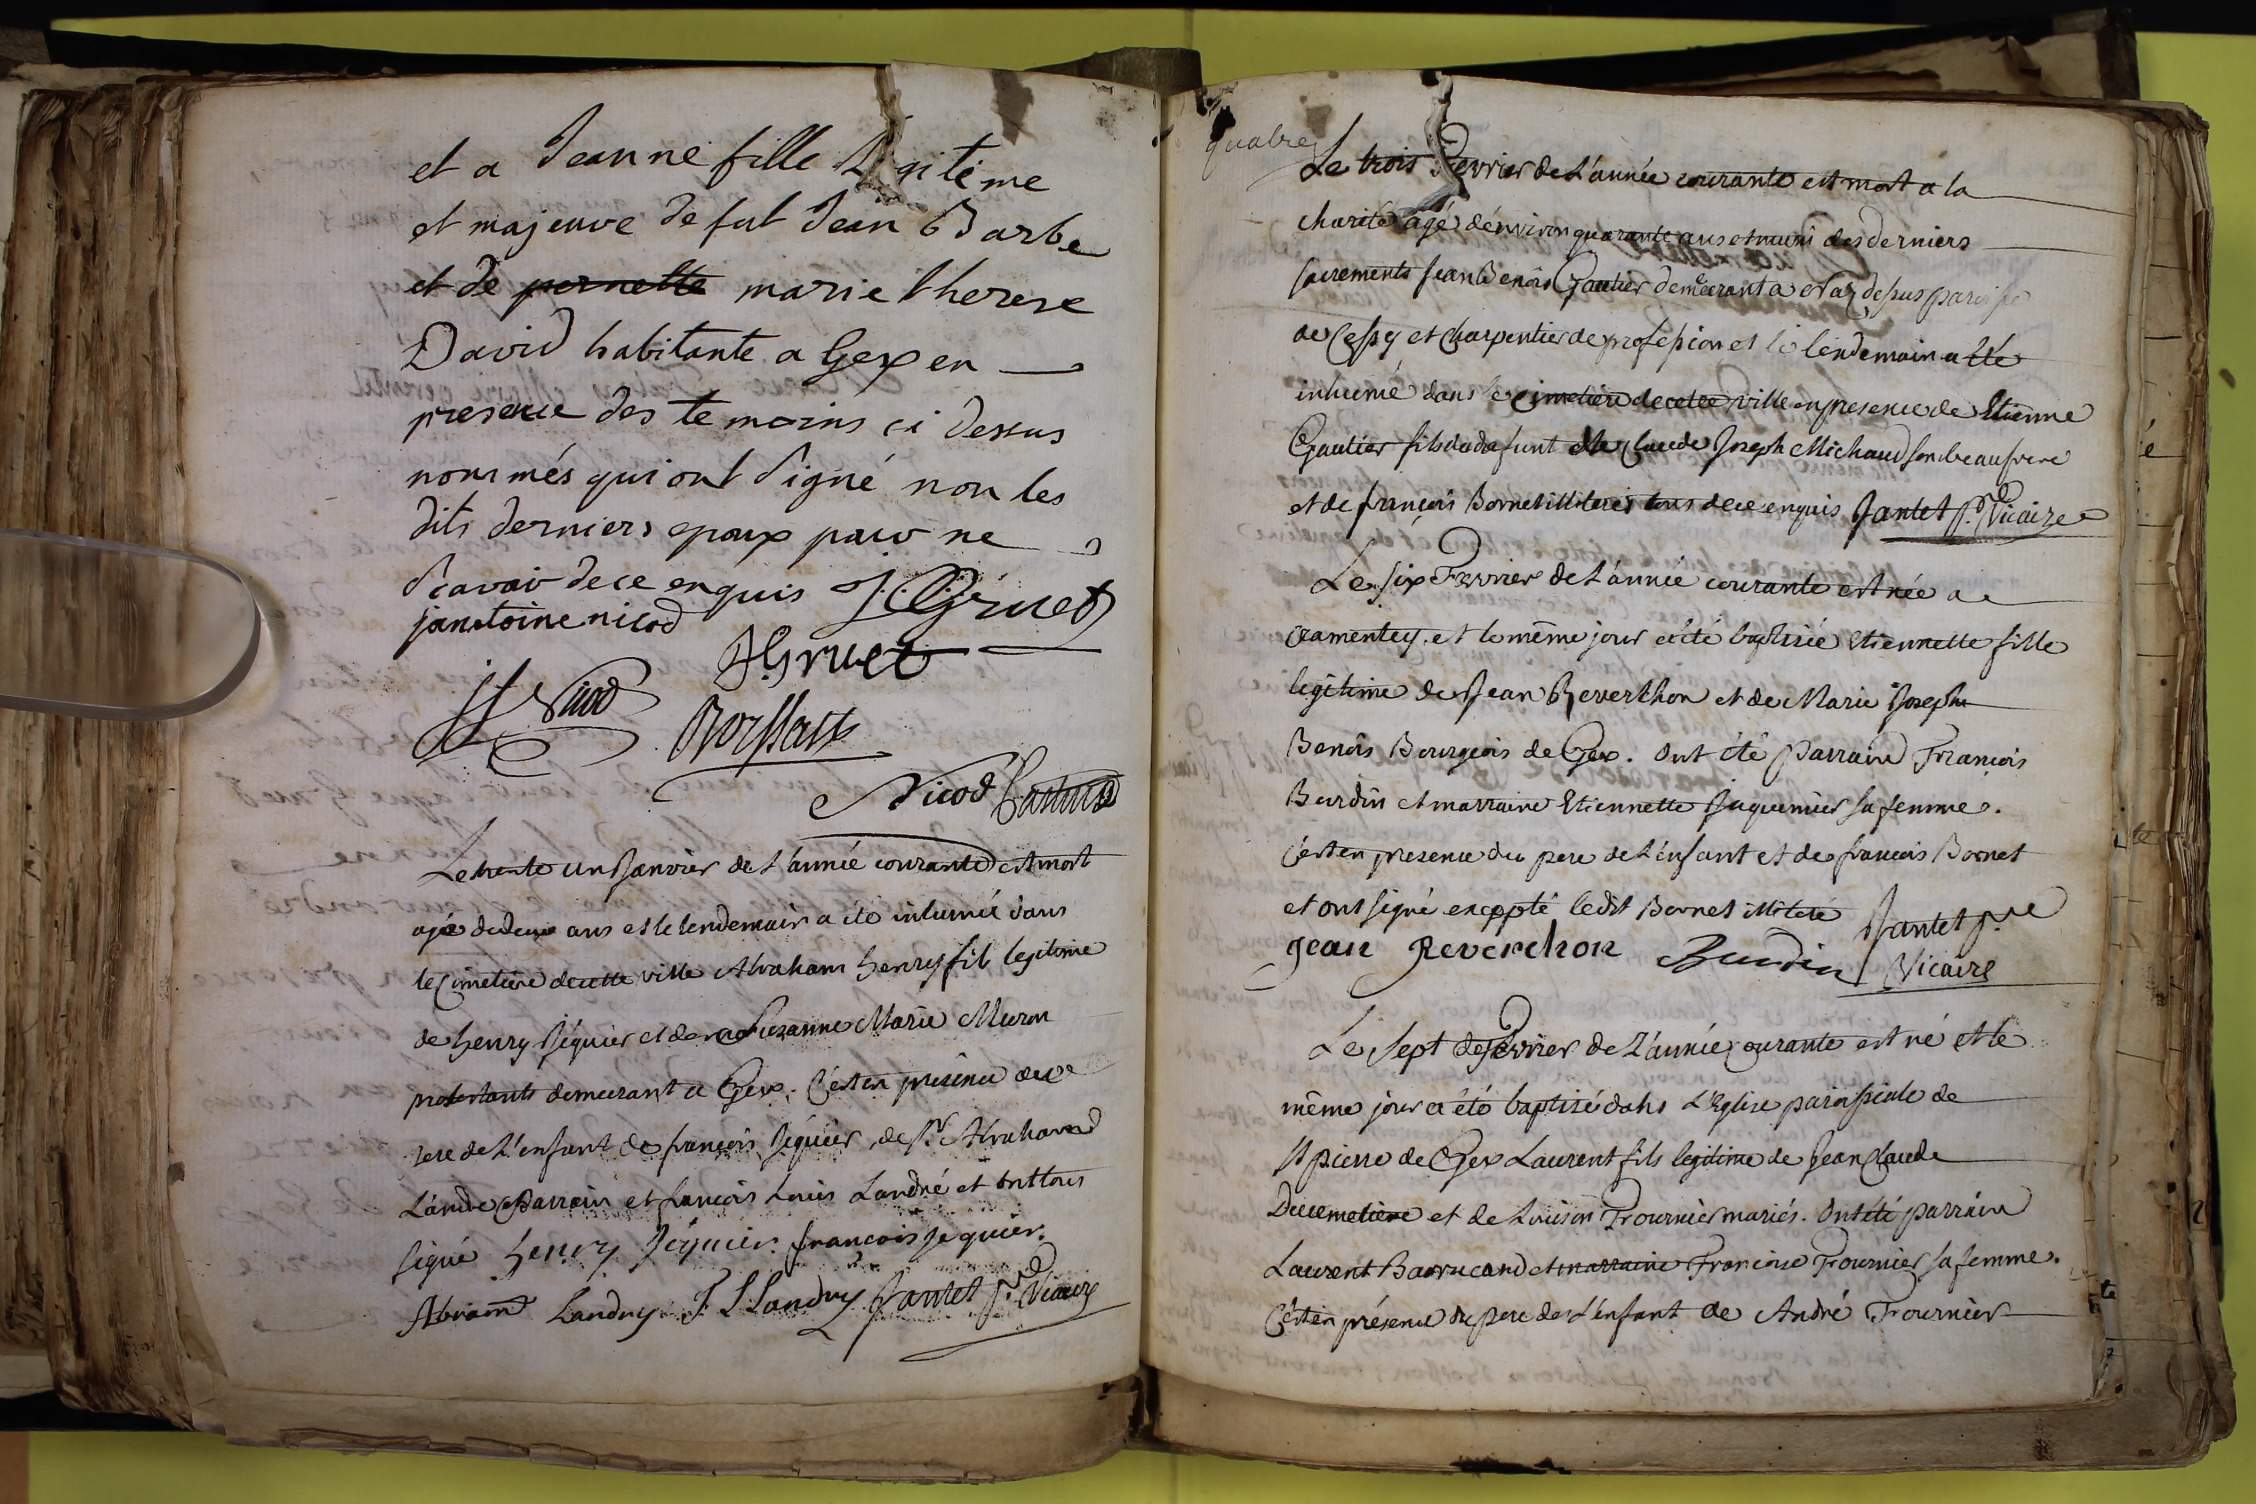 et a Jeanne fille Legiteme
et majeuve de fut Jean Barbe
et de pernette marie therese
David habitante a Gex en
presence des temoins ci dessus
nommés qui ont signé non les
dits derniers epoux pour ne
scavoir de ce enquis J. C. Gruet
janatoine nicod
A Gruet
Nicod
Nicod
Le trente un Janvier de L'année courante est mort
agé de deux ans et le lendemain a été inhumé dans
le Cimetiere de cette ville Abraham henry fils legitime
de henry Jéquier et de Suzanne Marie Muron
protestants demeurant a Gex. C'est en présence du
pere de L'enfant de françois Jéquier, de Sr. Abraham
Landre Parrain et francois Louis Landré et ont tous
signé henry Jéquier. francois jequier.
Abriam Landry F L Landry Jantet Ptre Vicaire
quatre
Le trois Fevrier de L'année courante est mort a la
charité agé d'environ quarante ans et muni des derniers
sacrements Jean Benois Gautier demeurant a dessus paroisse
de Cessy et Charpentier de profession et le lendemain a été
inhumé dans le Cimetiere de cette ville en presence de Etienne
Gautier fils du defunt de Claude Joseph Michaud son beaufrere
et de françois Bornet illiterés tous de ce enquis Jantet P. Vicaire
Le six Fevrier de L'année courante est née a
Cramentey. et le même jour a été baptisée Etiennette fille
legitime de Jean Reverthon et de Marie Joseph
Benois Bourgeois de Gex. Ont été Parrain François
Burdin et marraine Etiennette Jaquemier sa femme.
C'est en presence du pere de L'enfant et de francois Bornet
et ont signé excepté ledit Bornet illiteré Jantet Ptre
Jean Reverchon Burdin Vicaire
Le sept de Fevrier de L'année courante est né et le
même jour a été baptisé dans L'Eglise paroissiale de
St pierre de Gex Laurent fils legitime de Jean Claude
Ducimetiere et de Louison Fournier mariés. Ont été parrain
Laurent Barrucand et marraine Francoise Fournier sa femme.
C'est en présence du pere de L'enfant de André Fournier